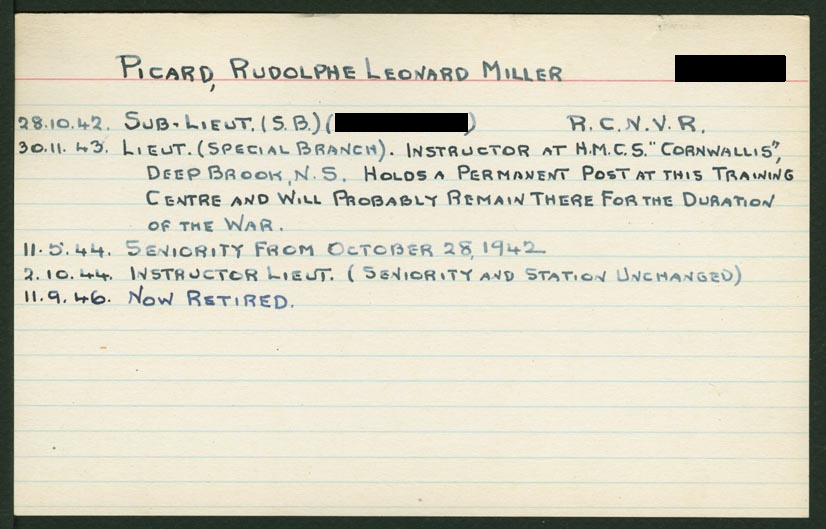 PICARD, RUDOLPHE LEONARD MILLER
28.10.42. SUB-LIEUT. (S.B.) ( ) R.C.N.V.R.
30.11.43. LIEUT. (SPECIAL BRANCH). INSTRUCTOR AT H.M.C.S. "CORNWALLIS",
DEEP BROOK, N.S. HOLDS A PERMANENT POST AT THIS TRAINING
CENTRE AND WILL PROBABLY REMAIN THERE FOR THE DURATION
OF THE WAR.
11.5.44. SENIORITY FROM OCTOBER 28, 1942
2.10.44. INSTRUCTOR LIEUT. (SENIORITY AND STATION UNCHANGED)
11.9.46. NOW RETIRED.